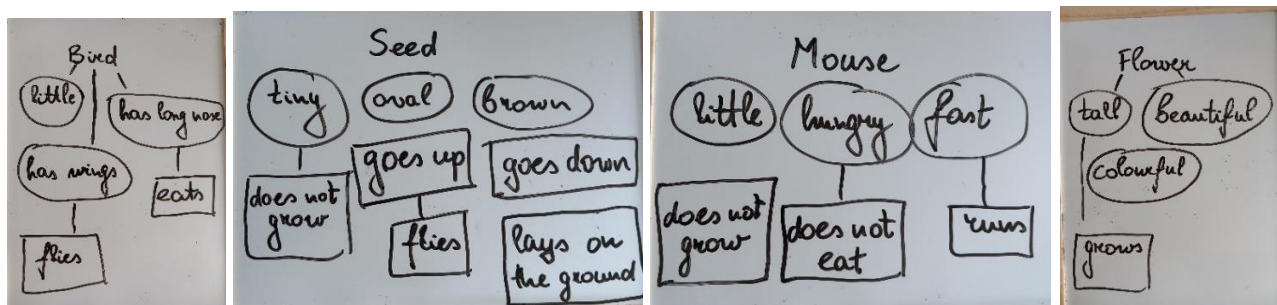 Bird
little
has long nose
has wings
eats
flies
Seed
tiny
oval
brown
goes up
goes down
does not
grow
flies
lays on
the ground
Mouse
little
hungry
fast
does not
grow
does not
eat
runs
Flower
tall
beautiful
colourful
grows